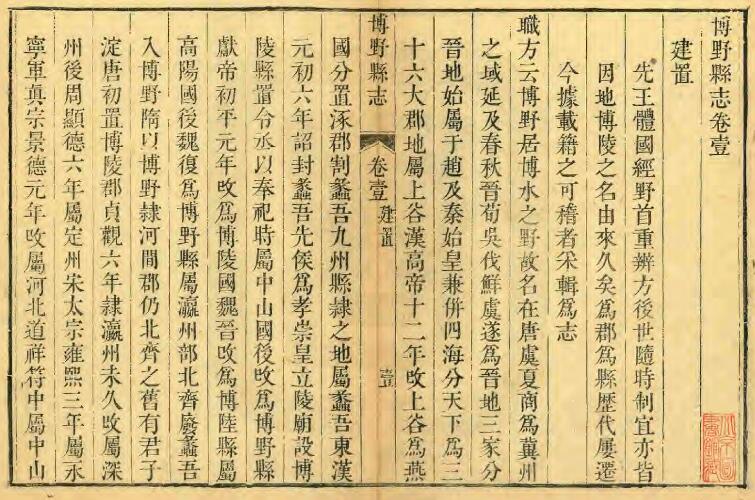 博野縣志卷壹
建置
先王體國經野首重辨方後世隨時制宜亦皆
因地博陵之名由來久矣為郡為縣歷代屢遷
今據載籍之可稽者采輯為志
職方云博野居博水之野故名在唐虞夏商為冀州
之域延及春秋晉荀吳伐鮮虞遂為晉地三家分
晉地始屬于趙及秦始皇兼併四海分天下為三
十六大郡地屬上谷漢高帝十二年改上谷為燕
博野縣志 卷壹 建置 壹
國分置涿郡割蠡吾九州縣隸之地屬蠡吾東漢
元初六年詔封蠡吾先侯為孝崇皇立陵廟設博
陵縣置令丞以奉祀時屬中山國後改為博野縣
獻帝初平元年改為博陵國魏晉改為博陸縣屬
高陽國後魏復為博野縣屬瀛州部北齊廢蠡吾
入博野隋以博野隸河間郡仍北齊之舊有君子
淀唐初置博陵郡貞觀六年隸瀛州未久改屬深
州後周顯德六年屬定州宋太宗雍熙三年屬永
寧軍真宗景德元年改屬河北道祥符中屬中山